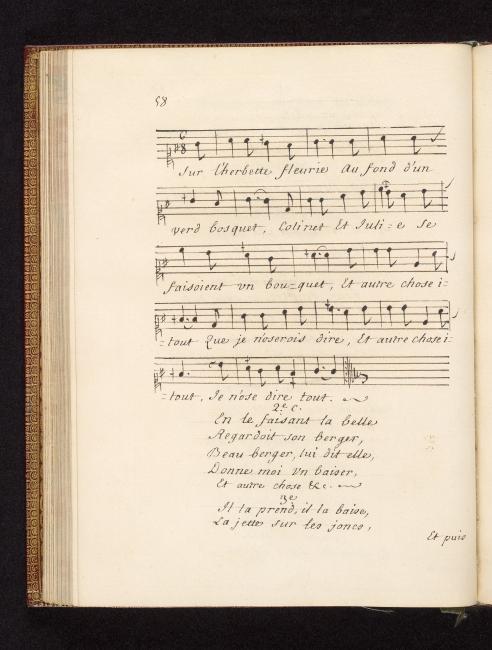 58
Sur l'herbette fleurie Au fond d'un
verd bosquet, Colinet Et Juli=e se
faisoient un bou=quet, Et autre chose i=
=tout Que je n'oserois dire, Et autre chose i=
=tout, Je n'ose dire tout.
2e. C.
En le faisant la belle
Regardoit son berger,
Beau berger, lui dit elle,
Donne moi un baiser,
Et autre chose &c.
3e
Il la prend, il la baise,
La jette sur les joncs,
Et puis